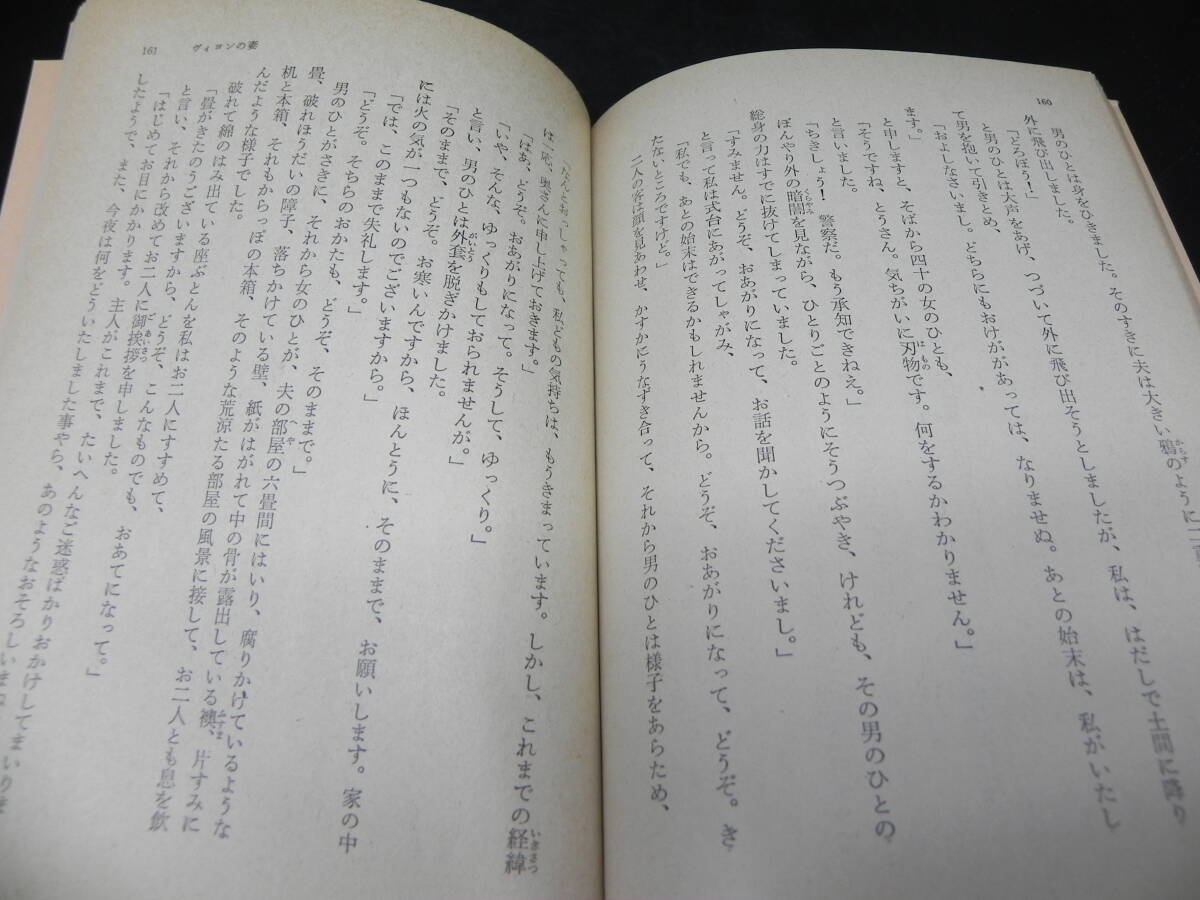 160
男のひとは身をひきました。そのすきに夫は大きい鴉のように二
外に飛び出しました。
「どろぼう!」
と男のひとは大声をあげ、つづいて外に飛び出そうとしましたが、私は、はだしで土間に降り
て男を抱いて引きとめ、
「およしなさいまし。どちらにもおけががあっては、なりませぬ。あとの始末は、私がいたし
ます。」
と申しますと、そばから四十の女のひとも、
「そうですね、とうさん。気ちがいに刃物です。何をするかわかりません。」
と言いました。
「ちきしょう! 警察だ。もう承知できねえ。」
ぼんやり外の暗闇を見ながら、ひとりごとのようにそうつぶやき、けれども、その男のひとの
総身の力はすでに抜けてしまっていました。
「すみません。どうぞ、おあがりになって、お話を聞かしてくださいまし。」
と言って私は式台にあがってしゃがみ、
「私でも、あとの始末はできるかもしれませんから。どうぞ、おあがりになって、どうぞ。き
たないところですけど。」
二人の客は顔を見あわせ、かすかにうなずき合って、それから男のひとは様子をあらため、
161 ヴィヨンの妻
「なんとおっしゃっても、私どもの気持ちは、もうきまっています。しかし、これまでの経緯
は一応、奥さんに申し上げておきます。」
「はあ、どうぞ。おあがりになって。そうして、ゆっくり。」
「いや、そんな、ゆっくりもしておられませんが。」
と言い、男のひとは外套を脱ぎかけました。
「そのままで、どうぞ。お寒いんですから、ほんとうに、そのままで、お願いします。家の中
には火の気が一つもないのでございますから。」
「では、このままで失礼します。」
「どうぞ。そちらのおかたも、どうぞ、そのままで。」
男のひとがさきに、それから女のひとが、夫の部屋の六畳間にはいり、腐りかけているような
畳、破れほうだいの障子、落ちかけている壁、紙がはがれて中の骨が露出している襖、片すみに
机と本箱、それもからっぽの本箱、そのような荒涼たる部屋の風景に接して、お二人とも息を飲
んだような様子でした。
破れて綿のはみ出ている座ぶとんを私はお二人にすすめて、
「畳がきたのうございますから、どうぞ、こんなものでも、おあてになって。」
と言い、それから改めてお二人に御挨拶を申しました。
「はじめてお目にかかります。主人がこれまで、たいへんなご迷惑ばかりおかけしてまいりま
したようで、また、今夜は何をどういたしました事やら、あのようなおそろしいまね